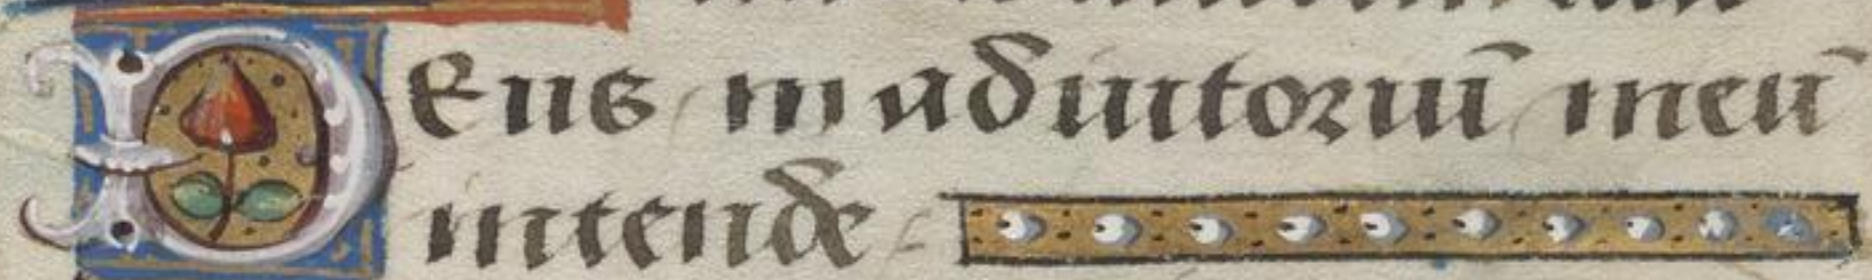 DEus in adiutoriū meū
intende